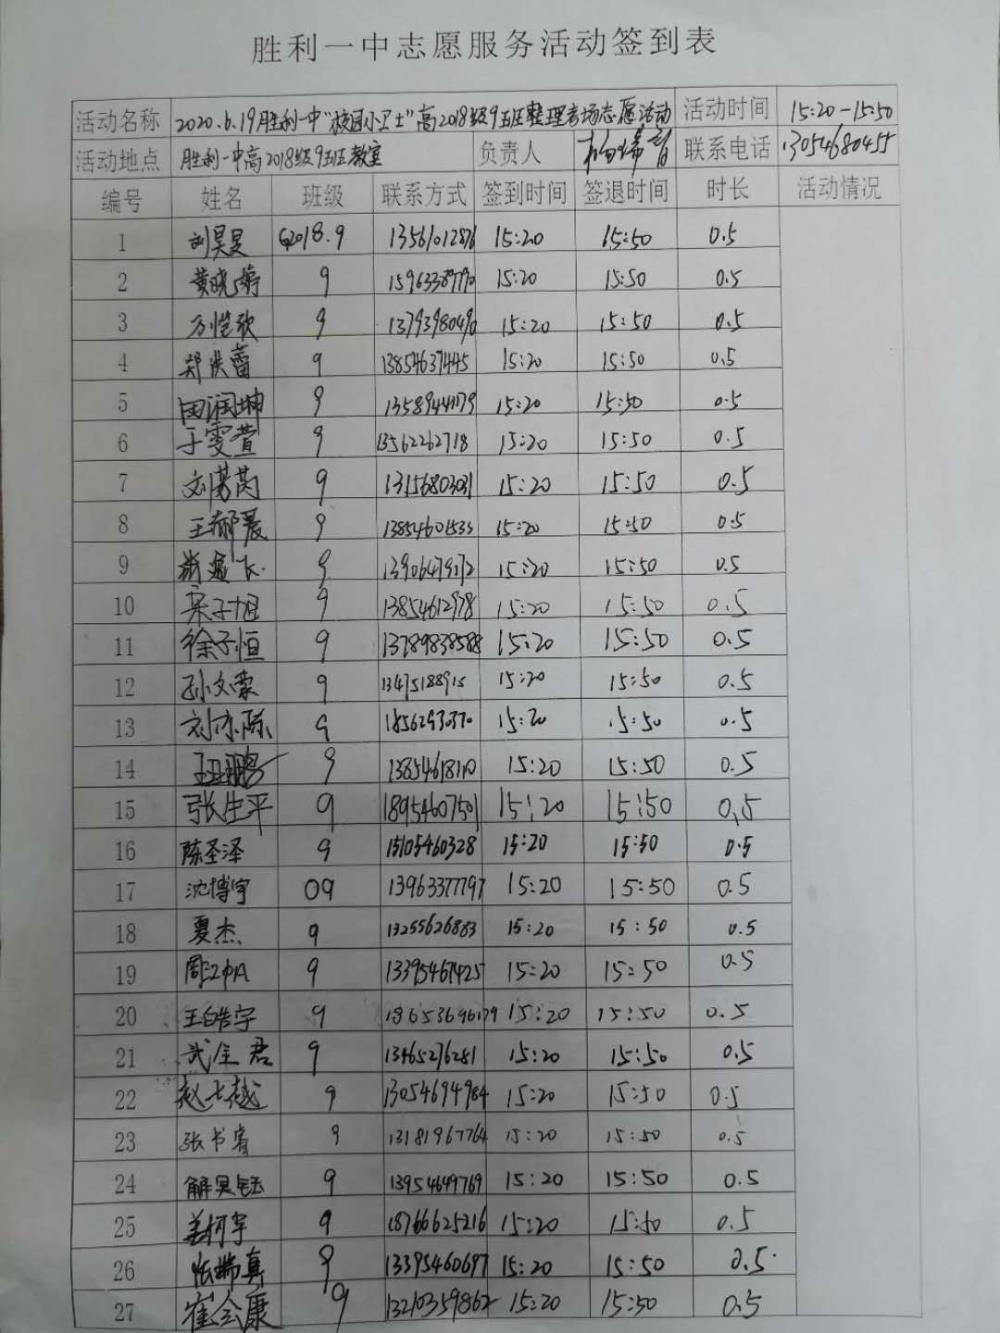 胜利一中志愿服务活动签到表
活动名称 2020.6.19胜利一中“校园小卫士”高2018级9班整理考场志愿活动 活动时间 15:20-15:50
活动地点 胜利一中高2018级9班教室 负责人 联系电话 13054680455
编号 姓名 班级 联系方式 签到时间 签退时间 时长 活动情况
1 刘昊昱 G2018.9 13561012876 15:20 15:50 0.5
2 黄晓婷 9 15963389790 15:20 15:50 0.5
3 万恺欣 9 1379398049 15:20 15:50 0.5
4 郑洪蕾 9 13854637445 15:20 15:50 0.5
5 田润坤 9 15:20 15:50 0.5
6 于雯萱 9 13562262718 15:20 15:50 0.5
7 9 13156803031 15:20 15:50 0.5
8 王郝晨 9 13854601533 15:20 15:50 0.5
9 9 13906479172 15:20 15:50 0.5
10 宋子旭 9 13854612978 15:20 15:50 0.5
11 徐子恒 9 13789838588 15:20 15:50 0.5
12 孙文荣 9 13475188915 15:20 15:50 0.5
13 刘亦陈 9 1856293037 15:20 15:50 0.5
14 9 13854618110 15:20 15:50 0.5
15 张生平 9 18954607501 15:20 15:50 0.5
16 陈圣泽 9 15105460328 15:20 15:50 0.5
17 沈博宇 09 13963377797 15:20 15:50 0.5
18 夏杰 9 13255626883 15:20 15:50 0.5
19 9 13395467425 15:20 15:50 0.5
20 王皓宇 9 18653696179 15:20 15:50 0.5
21 武全君 9 13465276281 15:20 15:50 0.5
22 赵士越 9 13054694984 15:20 15:50 0.5
23 张书睿 9 13181967764 15:20 15:50 0.5
24 解昊钰 9 13954649769 15:20 15:50 0.5
25 姜柯宇 9 18766625216 15:20 15:50 0.5
26 张瑞真 9 13395460697 15:20 15:50 0.5
27 崔会康 9 13210359862 15:20 15:50 0.5